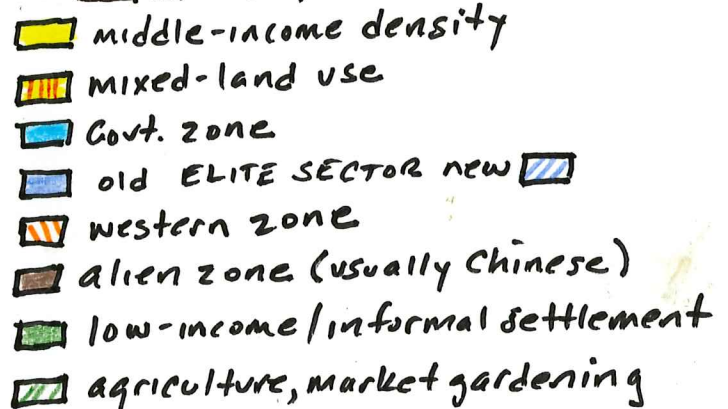 middle-income density
mixed-land use
Govt. zone
old ELITE SECTOR new
western zone
alien zone (usually Chinese)
low-income/informal settlement
agriculture, market gardening